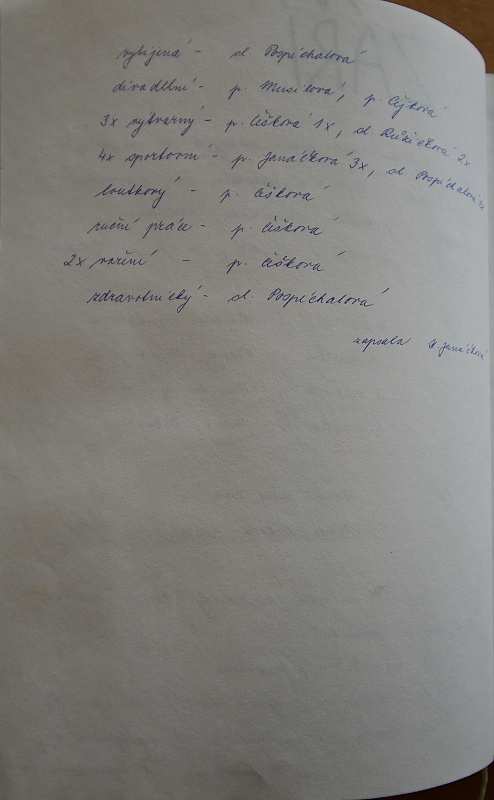 vybíjená - sl. Pospíchalová
divadelní - p. Musilová, p. Čížková
3x výtvarný - p. Čišková 1x, sl. Růžičková 2x
4x sportovní - p. Janáčková 3x, sl. Pospíchalová 1x
loutkový - p. Čišková
ruční práce - p. Čišková
2x vaření - p. Čišková
zdravotnický - sl. Pospíchalová
zapsala Janáčková